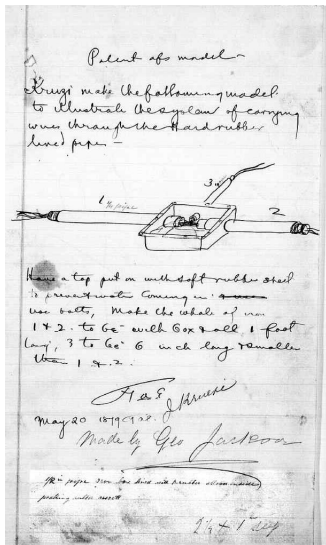 Patent ofs model -
Kruzi make the following model
to illustrate the system of carrying
wires through the Hard rubber
lined pipes -
3
1
2
Have a top put on with soft rubber
to prevent water coming in
use bolts, Make the whole of iron
1 & 2. to be with box & all 1 foot
long, 3 to be 6 inch long & smaller
than 1 & 2.
J Kruesi
May 20
Made by Geo Jackson
pipe iron box lined with rubber
packing rubber